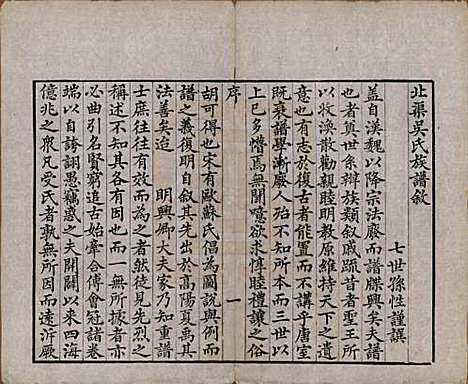 北渠吳氏族譜敘
七世孫性謹譔
蓋自漢魏以降宗法廢而譜牒興矣夫譜
也者奠世系辯族類敘戚疏昔者聖王所
以收渙散勸親睦明教原維持天下之遺
意也有志於復古者能置而不講乎唐室
既衰譜學漸廢人殆不知所本而三世以
上已多懵焉無聞噫欲求惇睦禮讓之俗
序
一
胡可得也宋有歐蘇氏倡為圖說與例而
譜之義復明自敘其先出於高陽夏禹其
法善矣迨 明興卿大夫家乃知重譜
士庶往往有效而為之者然徒見先烈之
稱述不知其各有因也而一何所掖者亦
必曲引名賢窮追古始牽合傅會冠諸卷
端以自誇詡愚竊惑之夫開闢以來四海
億兆之眾凡受氏者孰無所因而遠泝厥